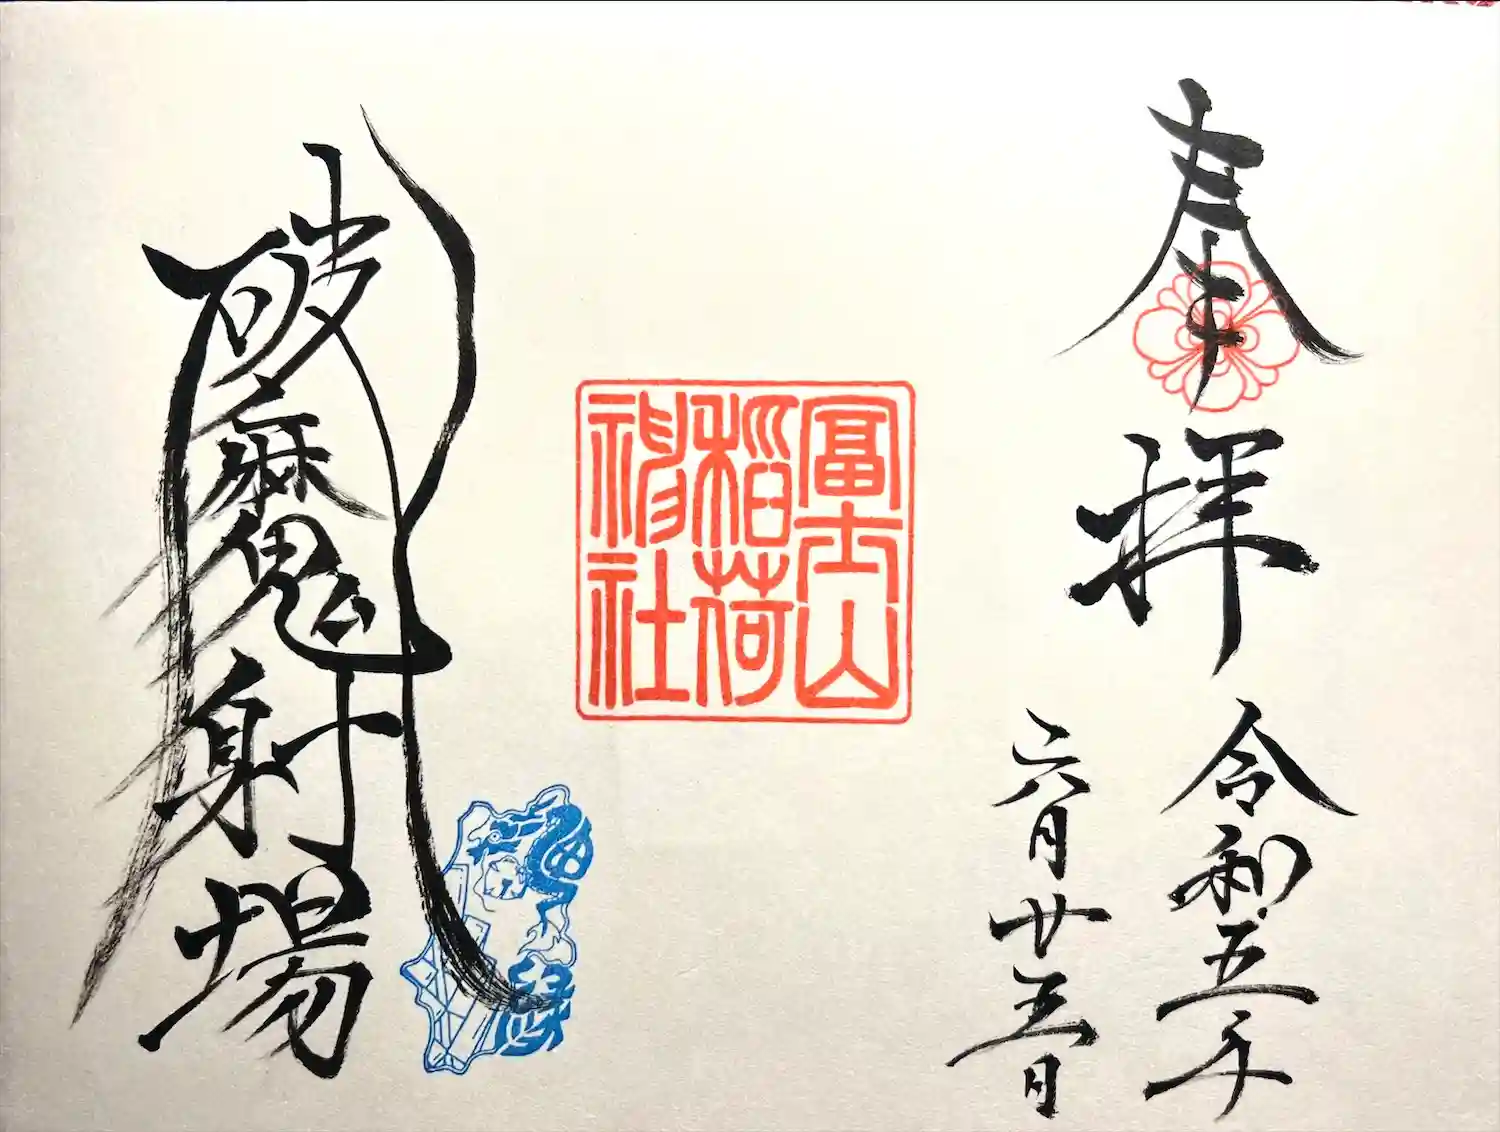 奉拝
令和五年
六月廿五日
冨士山
稲荷
神社
破魔射場